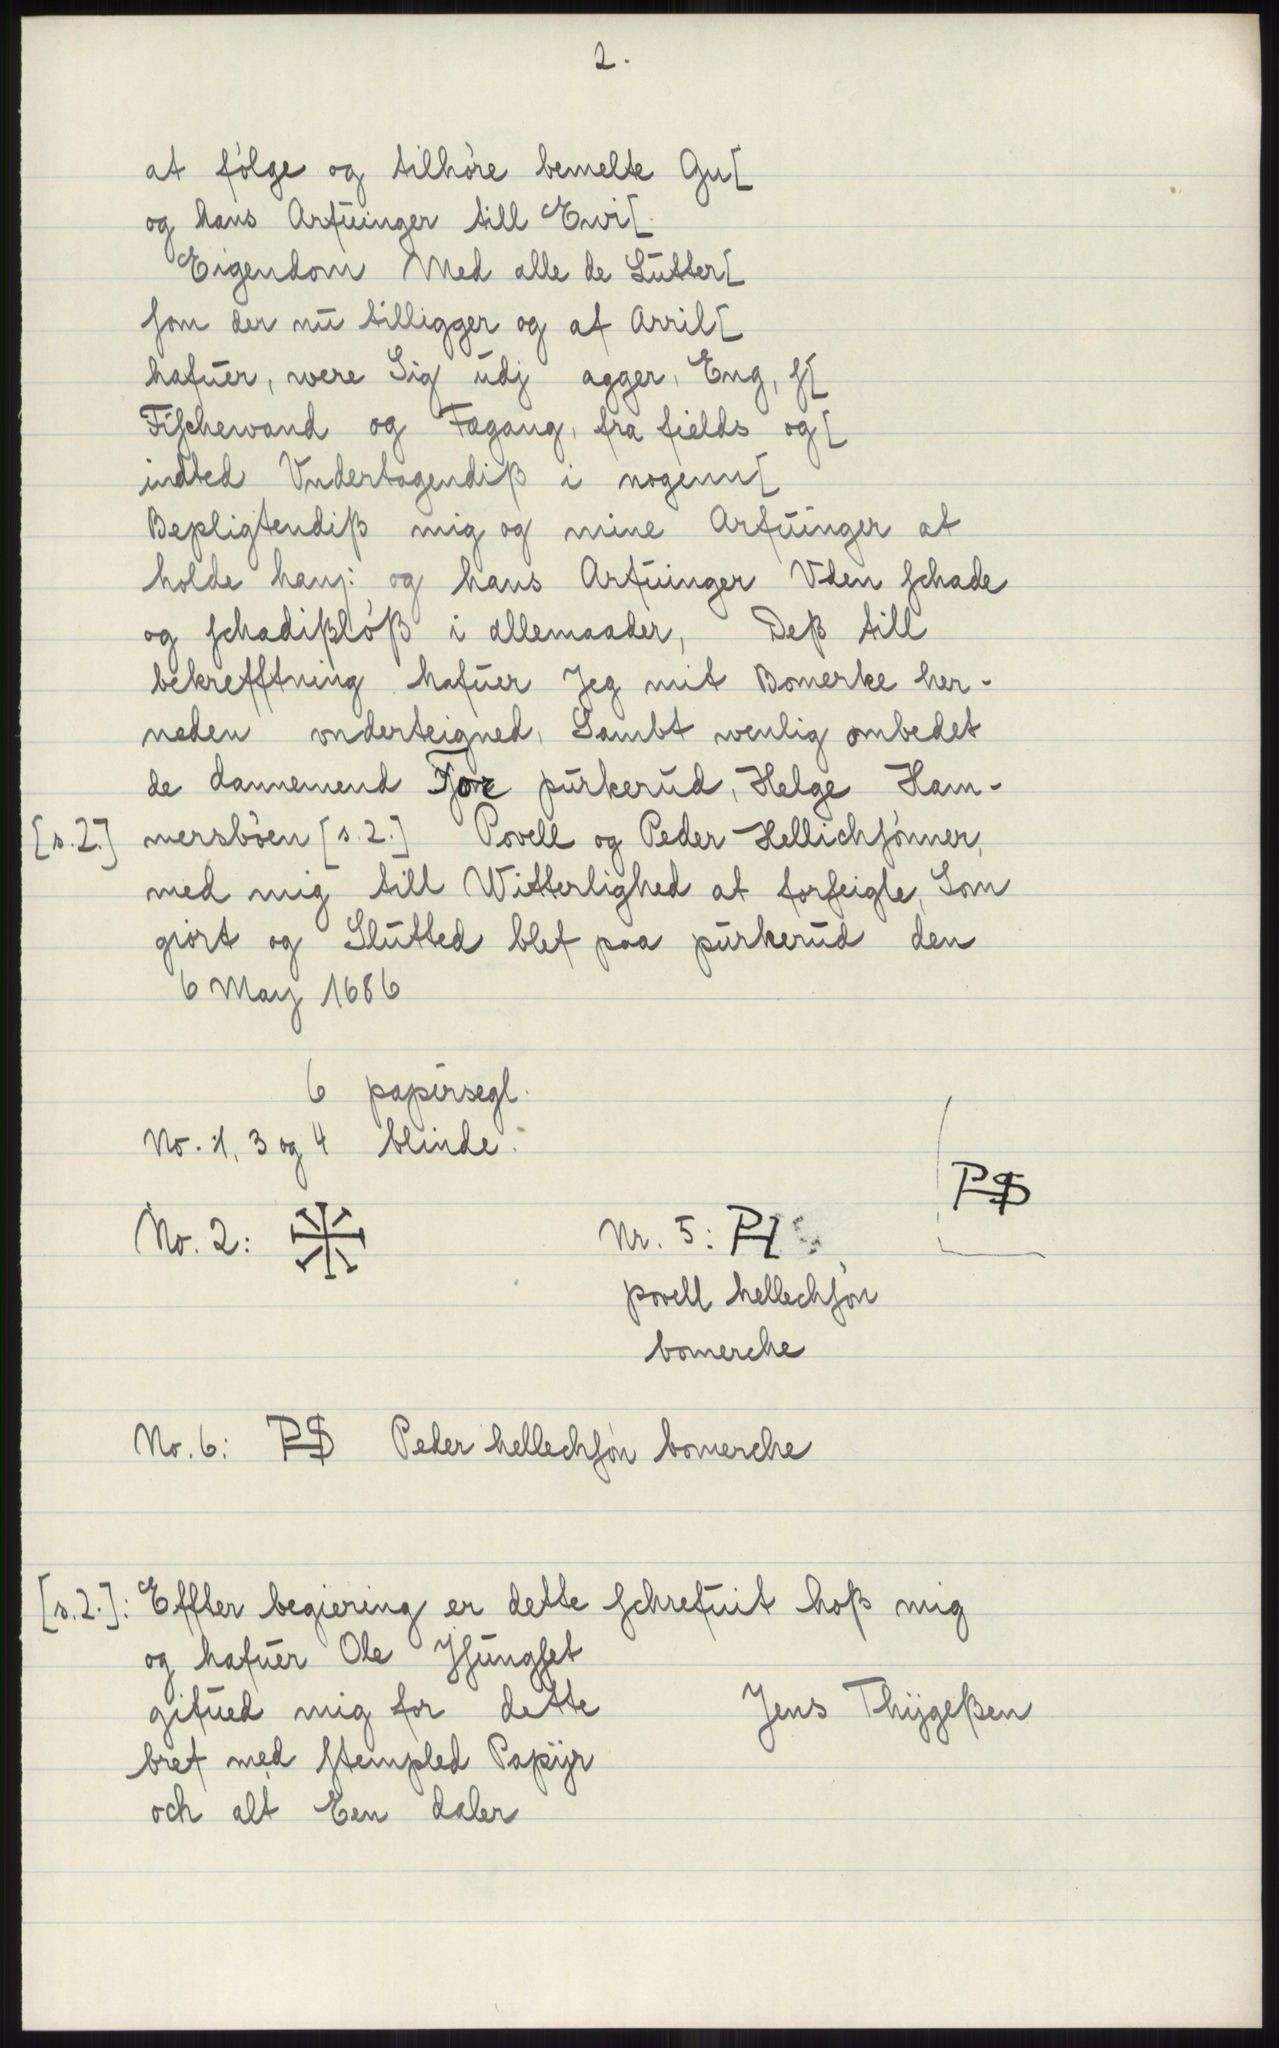 2.
at følge og tilhøre bemelte Gu[
og hans Arfuinger till Ewi[
Eigendom Med alle de Lutter[
som der nu tilligger og af Arril[
hafuer, were Sig udj agger, Eng, s[
Fischewand og Fægang, fra fields og [
indted Vndertagendiß i nogenn[
Bepligtendiß mig og mine Arfuinger at
holde hanj: og hans Arfuinger Vden schade
og schadißløß i allemaader, Deß till
bekrefftning hafuer Jeg mit Bomerke her-
neden vnderteigned, Sambt wenlig ombedet
de dannemend Tore purkerud, Helge Ham-
[s.2.] mersbøen [s.2.] Povell og Peder Hellichsønner,
med mig till Witterlighed at forseigle, Som
giørt og Slutted blef paa purkerud den
6 May 1686
6 papirsegl.
No. 1, 3 og 4 blinde.
PHS
No. 2: Nr. 5: PH
povell hellechsøn
bomerche
No. 6: PHS Peder hellechsøn bomerche
[s.2.]: Effter begiering er dette schrefuit hoß mig
og hafuer Ole Jsungset
gifued mig for dette Jens Thygeßen
bref med stempled Papijr
och alt Een daler